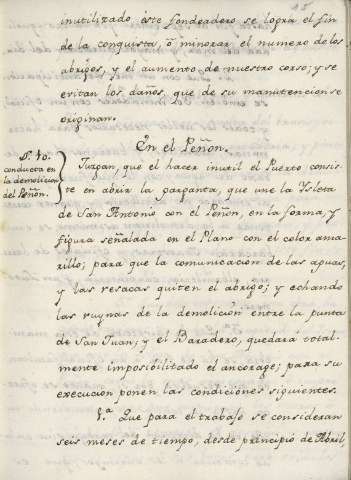 inutilizado este fondeadero se logra el fin
de la conquista, ó minorar el numero de los
abrigos, y el aumento de nuestro corso; y se
evitan los daños, que de su manutencion se
originan.
En el Peñon.
P. 40.
conducta en
la demolicion
del Peñon.
Juzgan, que el hacer inutil el Puerto consis-
te en abrir la garganta, que une la Ysleta
de San Antonio con el Peñon, en la forma, y
figura señalada en el Plano con el color ama-
rillo; para que la comunicacion de las aguas,
y las resacas quiten el abrigo; y echando
las ruynas de la demolicion entre la punta
de San Juan, y el Baradero, quedará total-
mente imposibilitado el ancorage; para su
execucion ponen las condiciones siguientes.
1.ª Que para el trabajo se consideran
seis meses de tiempo, desde principio de Abril,